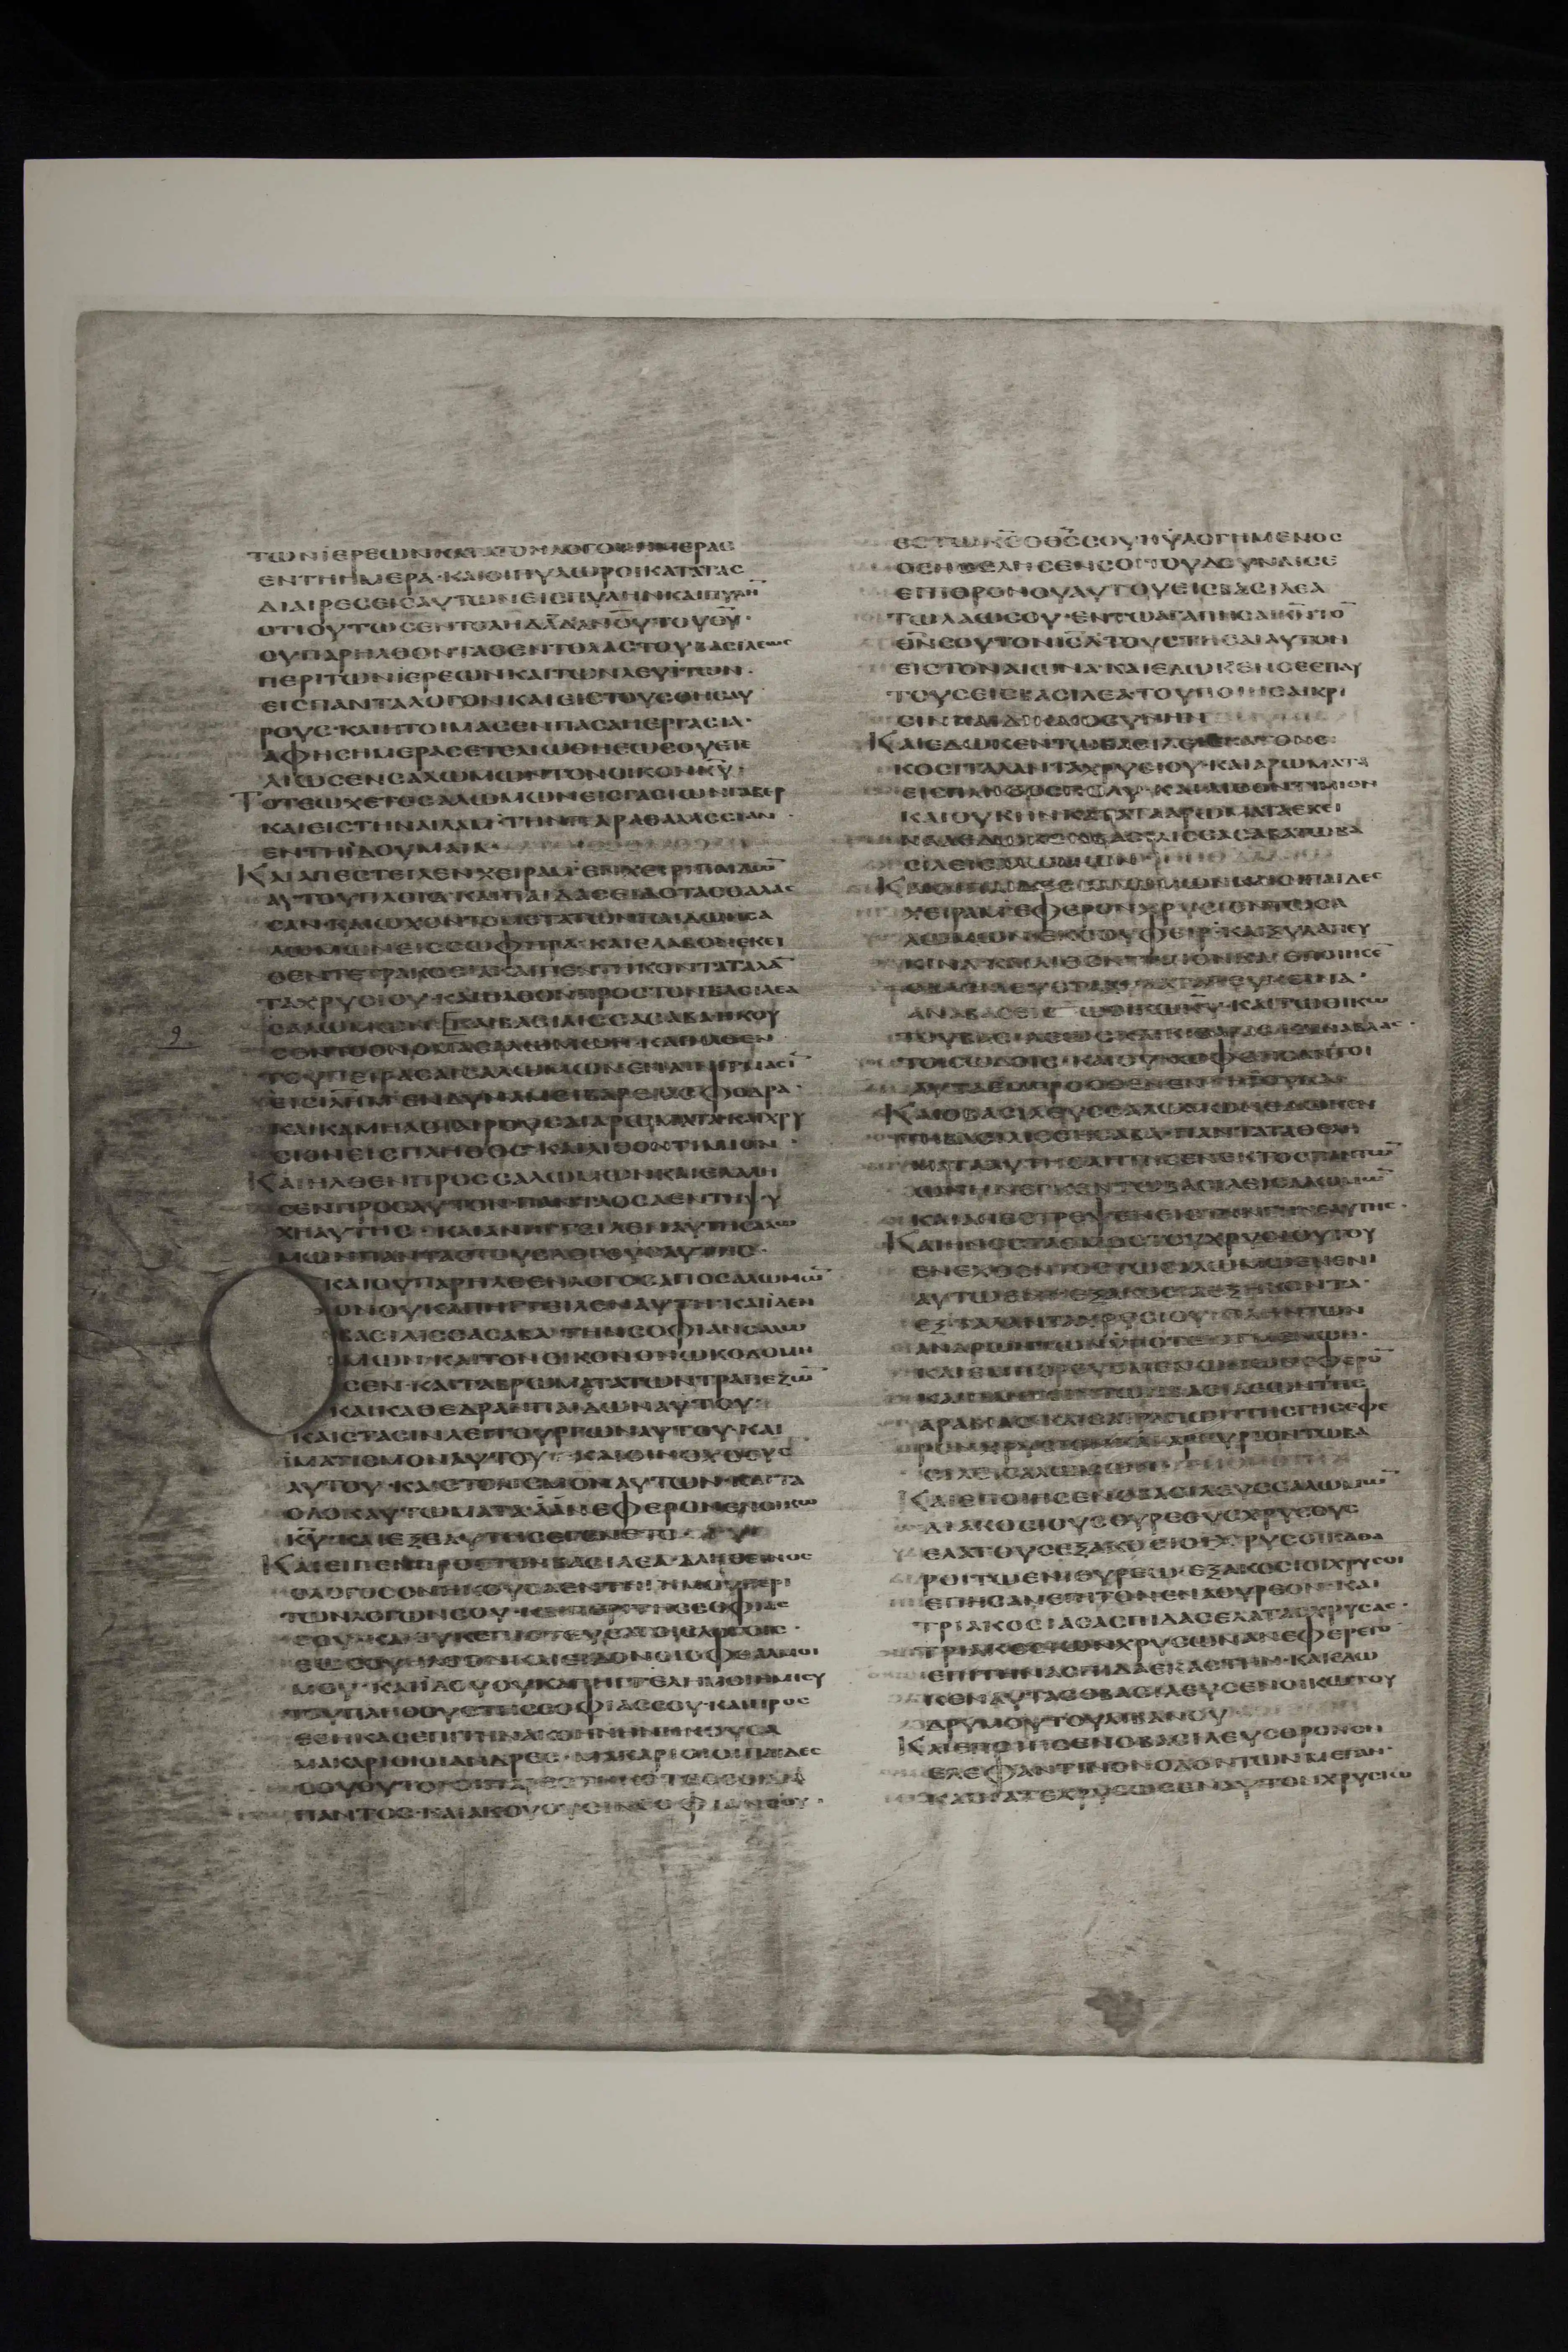 ΤΩΝΪΕΡΕΩΝΚΑΤΑΤΟΝΛΟΓΟΝΗΜΕΡΑΣ
ΕΝΤΗΗΜΕΡΑ·ΚΑΙΟΙΠΥΛΩΡΟΙΚΑΤΑΤΑΣ
ΔΙΑΙΡΕΣΕΙΣΑΥΤΩΝΕΙΣΠΥΛΗΝΚΑΙΠΥΛΗ̅
ΟΤΙΟΥΤΩΣΕΝΤΟΛΗΔΑ̅Δ
ΟΥΠΑΡΗΛΘΟΝΤΑΣΕΝΤΟΛΑΣΤΟΥΒΑΣΙΛΕΩΣ
ΠΕΡΙΤΩΝΪΕΡΕΩΝΚΑΙΤΩΝΛΕΥΙΤΩΝ·
ΕΙΣΠΑΝΤΑΛΟΓΟΝΚΑΙΕΙΣΤΟΥΣΘΗΣΑΥ
ΡΟΥΣ·ΚΑΙΗΤΟΙΜΑΣΕΝΠΑΣΑΝΕΡΓΑΣΙΑ·
ΑΦΗΣΗΜΕΡΑΣ
ΛΙΩΣΕΝΣΑΛΩΜΩΝΤΟΝΟΙΚΟΝΚ̅Υ̅·
ΤΟΤΕΩΧΕΤΟΣΑΛΩΜΩΝΕΙΣΓΑΣΙΩΝΓΑΒΕΡ
ΚΑΙΕΙΣΤΗΝΑΙΛΑΜ·ΤΗΝΠΑΡΑΘΑΛΑΣΣΙΑΝ
ΕΝΤΗΪΔΟΥΜΑΙΑ·
ΚΑΙΑΠΕΣΤΕΙΛΕΝΧΕΙΡΑΜ·ΕΝΧΕΙΡΙΠΑΙΔΩ̅
ΑΥΤΟΥΠΛΟΙΑ·ΚΑΙΠΑΙΔΑΣΕΙΔΟΤΑΣΘΑΛΑΣ
ΣΑΝ·ΚΑΙΩΧΟΝΤΟΜΕΤΑΤΩΝΠΑΙΔΩΝΣΑ
ΛΩΜΩΝΕΙΣΣΩΦΗΡΑ·ΚΑΙΕΛΑΒΟΝΕΚΕΙ
ΘΕΝΤΕΤΡΑΚΟΣΙΑΚΑΙΠΕΝΤΗΚΟΝΤΑΤΑΛΑ̅
ΤΑΧΡΥΣΙΟΥ·ΚΑΙΗΛΘΟΝΠΡΟΣΤΟΝΒΑΣΙΛΕΑ
ΣΑΛΩΜΩΝ·ΚΑΙΒΑΣΙΛΙΣΣΑΣΑΒΑΗΚΟΥ
ΣΕΝΤΟΟΝΟΜΑΣΑΛΩΜΩΝ·ΚΑΙΗΛΘΕΝ
ΤΟΥΠΕΙΡΑΣΑΙΣΑΛΩΜΩΝΕΝΑΙΝΙΓΜΑΣΙ̅
ΕΙΣΙΛΗΜ·ΕΝΔΥΝΑΜΕΙΒΑΡΕΙΑΣΦΟΔΡΑ·
ΚΑΙΚΑΜΗΛΟΙΑΙΡΟΥΣΑΙΑΡΩΜΑΤΑ·ΚΑΙΧΡΥ
ΣΙΟΝΕΙΣΠΛΗΘΟΣ·ΚΑΙΛΙΘΟΝΤΙΜΙΟΝ·
ΚΑΙΗΛΘΕΝΠΡΟΣΣΑΛΩΜΩΝΚΑΙΕΛΑΛΗ
ΣΕΝΠΡΟΣΑΥΤΟΝ·ΠΑΝΤΑΟΣΑΕΝΤΗΨΥ
ΧΗΑΥΤΗΣ·ΚΑΙΑΝΗΓΓΕΙΛΕΝΑΥΤΗΣΑΛΩ
ΜΩΝΠΑΝΤΑΣΤΟΥΣΛΟΓΟΥΣΑΥΤΗΣ·
ΚΑΙΟΥΠΑΡΗΛΘΕΝΛΟΓΟΣΑΠΟΣΑΛΩΜΩ̅
ΟΝΟΥΚΑΠΗΓΓΕΙΛΕΝΑΥΤΗ·ΚΑΙΪΔΕΝ
ΒΑΣΙΛΙΣΣΑΣΑΒΑ·ΤΗΝΣΟΦΙΑΝΣΑΛΩ
ΜΩΝ·ΚΑΙΤΟΝΟΙΚΟΝΟΝΩΚΟΔΟΜΗ
ΣΕΝ·ΚΑΙΤΑΒΡΩΜΑΤΑΤΩΝΤΡΑΠΕΖΩ̅
ΚΑΙΚΑΘΕΔΡΑΝΠΑΙΔΩΝΑΥΤΟΥ·
ΚΑΙΣΤΑΣΙΝΛΕΙΤΟΥΡΓΩΝΑΥΤΟΥ·ΚΑΙ
ΪΜΑΤΙΣΜΟΝΑΥΤΟΥ·ΚΑΙΟΙΝΟΧΟΟΥΣ
ΑΥΤΟΥ·ΚΑΙΣΤΟΛΙΣΜΟΝΑΥΤΩΝ·ΚΑΙΤΑ
ΟΛΟΚΑΥΤΩΜΑΤΑ·ΑΑΝΕΦΕΡΟΝΕΝΟΙΚΩ
Κ̅Υ̅·ΚΑΙΕΞΕΑΥΤΗΣΕΓΕΝΕΤΟ
ΚΑΙΕΙΠΕΝΠΡΟΣΤΟΝΒΑΣΙΛΕΑ·ΑΛΗΘΕΙΝΟΣ
ΟΛΟΓΟΣΟΝΗΚΟΥΣΑΕΝΤΗΓΗΜΟΥΠΕΡΙ
ΤΩΝΛΟΓΩΝΣΟΥ·ΚΑΙΠΕΡΙΤΗΣΣΟΦΙΑΣ
ΣΟΥ·ΚΑΙΟΥΚΕΠΙΣΤΕΥΣΑΤΟΙΣΛΟΓΟΙΣ·
ΕΩΣΟΥΗΛΘΟΝ·ΚΑΙΕΙΔΟΝΟΙΟΦΘΑΛΜΟΙ
ΜΟΥ·ΚΑΙΪΔΟΥΟΥΚΑΠΗΓΓΕΛΗΜΟΙΗΜΙΣΥ
ΤΟΥΠΛΗΘΟΥΣΤΗΣΣΟΦΙΑΣΣΟΥ·ΚΑΙΠΡΟΣ
ΕΘΗΚΑΣΕΠΙΤΗΝΑΚΟΗΝΗΝΗΚΟΥΣΑ
ΜΑΚΑΡΙΟΙΟΙΑΝΔΡΕΣ·ΜΑΚΑΡΙΟΙΟΙΠΑΙΔΕΣ
ΣΟΥΟΥΤΟΙΟΙΠΑΡΕΣΤΗΚΟΤΕΣΣΟΙΔΙΑ
ΠΑΝΤΟΣ·ΚΑΙΑΚΟΥΟΥΣΙΝΣΟΦΙΑΝΣΟΥ·
ΕΣΤΩΚ̅Σ̅ΟΘ̅Σ̅ΣΟΥΗΥΛΟΓΗΜΕΝΟΣ
ΟΣΗΘΕΛΗΣΕΝΣΟΙΤΟΥΔΟΥΝΑΙΣΕ
ΕΠΙΘΡΟΝΟΥΑΥΤΟΥΕΙΣΒΑΣΙΛΕΑ
ΤΩΛΑΩΣΟΥ·ΕΝΤΩΑΓΑΠΗΣΑΙΚ̅Ν̅ΤΟ̅
Θ̅Ν̅ΣΟΥΤΟΝΙ̅Σ̅Λ̅·ΤΟΥΣΤΗΣΑΙΑΥΤΟΝ
ΕΙΣΤΟΝΑΙΩΝΑ·ΚΑΙΕΔΩΚΕΝΣΕΕΠΑΥ
ΤΟΥΣΕΙΣΒΑΣΙΛΕΑ·ΤΟΥΠΟΙΗΣΑΙΚΡΙ
ΣΙΝΚΑΙΔΙΚΑΙΟΣΥΝΗΝ
ΚΑΙΕΔΩΚΕΝΤΩΒΑΣΙΛΕΙΕΚΑΤΟΝΕΙ
ΚΟΣΙΤΑΛΑΝΤΑΧΡΥΣΙΟΥ·ΚΑΙΑΡΩΜΑΤΑ
ΕΙΣΠΛΗΘΟΣΠΟΛΥ·ΚΑΙΛΙΘΟΝΤΙΜΙΟΝ
ΚΑΙΟΥΚΗΝΚΑΤΑΤΑΑΡΩΜΑΤΑΕΚΕΙ
ΝΑΑΕΔΩΚΕΝΒΑΣΙΛΙΣΣΑΣΑΒΑΤΩΒΑ
ΣΙΛΕΙΣΑΛΩΜΩΝ
ΚΑΙΟΙΠΑΙΔΕΣΣΑΛΩΜΩΝΚΑΙΟΙΠΑΙΔΕΣ
ΧΕΙΡΑΜ·ΕΦΕΡΟΝΧΡΥΣΙΟΝΤΩΣΑ
ΛΩΜΩΝΕΚΣΟΥΦΕΙΡ·ΚΑΙΞΥΛΑΠΕΥ
ΚΙΝΑ·ΚΑΙΛΙΘΟΝΤΙΜΙΟΝ·ΚΑΙΕΠΟΙΗΣΕ̅
ΟΒΑΣΙΛΕΥΣΤΑΞΥΛΑΤΑΠΕΥΚΕΙΝΑ·
ΑΝΑΒΑΣΕΙΣΤΩΟΙΚΩΚ̅Υ̅·ΚΑΙΤΩΟΙΚΩ
ΤΟΥΒΑΣΙΛΕΩΣ·ΚΑΙΚΙΘΑΡΑΣΚΑΙΝΑΒΛΑΣ·
ΤΟΙΣΩΔΟΙΣ·ΚΑΙΟΥΚΩΦΘΗΣΑΝΤΟΙ
ΑΥΤΑΕΜΠΡΟΣΘΕΝΕΝΓΗΪΟΥΔΑ·
ΚΑΙΟΒΑΣΙΛΕΥΣΣΑΛΩΜΩΝΕΔΩΚΕΝ
ΤΗΒΑΣΙΛΙΣΣΗΣΑΒΑ·ΠΑΝΤΑΤΑΘΕΛΗ
ΜΑΤΑΑΥΤΗΣΑΗΤΗΣΕΝΕΚΤΟΣΠΑΝΤΩ̅
ΩΝΗΝΕΓΚΕΝΤΩΒΑΣΙΛΕΙΣΑΛΩΜΩ̅
ΚΑΙΑΠΕΣΤΡΕΨΕΝΕΙΣΤΗΝΓΗΝΕΑΥΤΗΣ·
ΚΑΙΗΝΟΣΤΑΘΜΟΣΤΟΥΧΡΥΣΙΟΥΤΟΥ
ΕΝΕΧΘΕΝΤΟΣΤΩΣΑΛΩΜΩΝΕΝΕΝΙ
ΑΥΤΩΕΝΙ·ΕΞΑΚΟΣΙΑΕΞΗΚΟΝΤΑ·
ΕΞΤΑΛΑΝΤΑΧΡΥΣΙΟΥ·ΠΛΗΝΤΩΝ
ΑΝΔΡΩΝΤΩΝΫΠΟΤΕΤΑΓΜΕΝΩΝ·
ΚΑΙΕΜΠΟΡΕΥΟΜΕΝΩΝΩΝΕΦΕΡΟ̅
ΚΑΙΠΑΝΤΩΝΤΩΝΒΑΣΙΛΕΩΝΤΗΣ
ΑΡΑΒΙΑΣ·ΚΑΙΣΑΤΡΑΠΩΝΤΗΣΓΗΣΕΦΕ
ΡΟΝΧΡΥΣΙΟΝΚΑΙΑΡΓΥΡΙΟΝΤΩΒΑ
ΣΙΛΕΙΣΑΛΩΜΩΝ
ΚΑΙΕΠΟΙΗΣΕΝΟΒΑΣΙΛΕΥΣΣΑΛΩΜΩ̅
ΔΙΑΚΟΣΙΟΥΣΘΥΡΕΟΥΣΧΡΥΣΟΥΣ
ΕΛΑΤΟΥΣΕΞΑΚΟΣΙΟΙΧΡΥΣΟΙΚΑΘΑ
ΡΟΙΤΩΕΝΙΘΥΡΕΩ·ΕΞΑΚΟΣΙΟΙΧΡΥΣΟΙ
ΕΠΗΣΑΝΕΠΙΤΟΝΕΝΑΘΥΡΕΟΝ·ΚΑΙ
ΤΡΙΑΚΟΣΙΑΣΑΣΠΙΔΑΣΕΛΑΤΑΣΧΡΥΣΑΣ·
ΤΡΙΑΚΟΣΙΩΝΧΡΥΣΩΝΑΝΕΦΕΡΕΤΟ
ΕΠΙΤΗΝΑΣΠΙΔΑΕΚΑΣΤΗΝ·ΚΑΙΕΔΩ
ΚΕΝΑΥΤΑΣΟΒΑΣΙΛΕΥΣΕΝΟΙΚΩΤΟΥ
ΔΡΥΜΟΥΤΟΥΛΙΒΑΝΟΥ
ΚΑΙΕΠΟΙΗΣΕΝΟΒΑΣΙΛΕΥΣΘΡΟΝΟΝ
ΕΛΕΦΑΝΤΙΝΟΝΟΔΟΝΤΩΝΜΕΓΑΝ·
ΚΑΙΚΑΤΕΧΡΥΣΩΣΕΝΑΥΤΟΝΧΡΥΣΙΩ